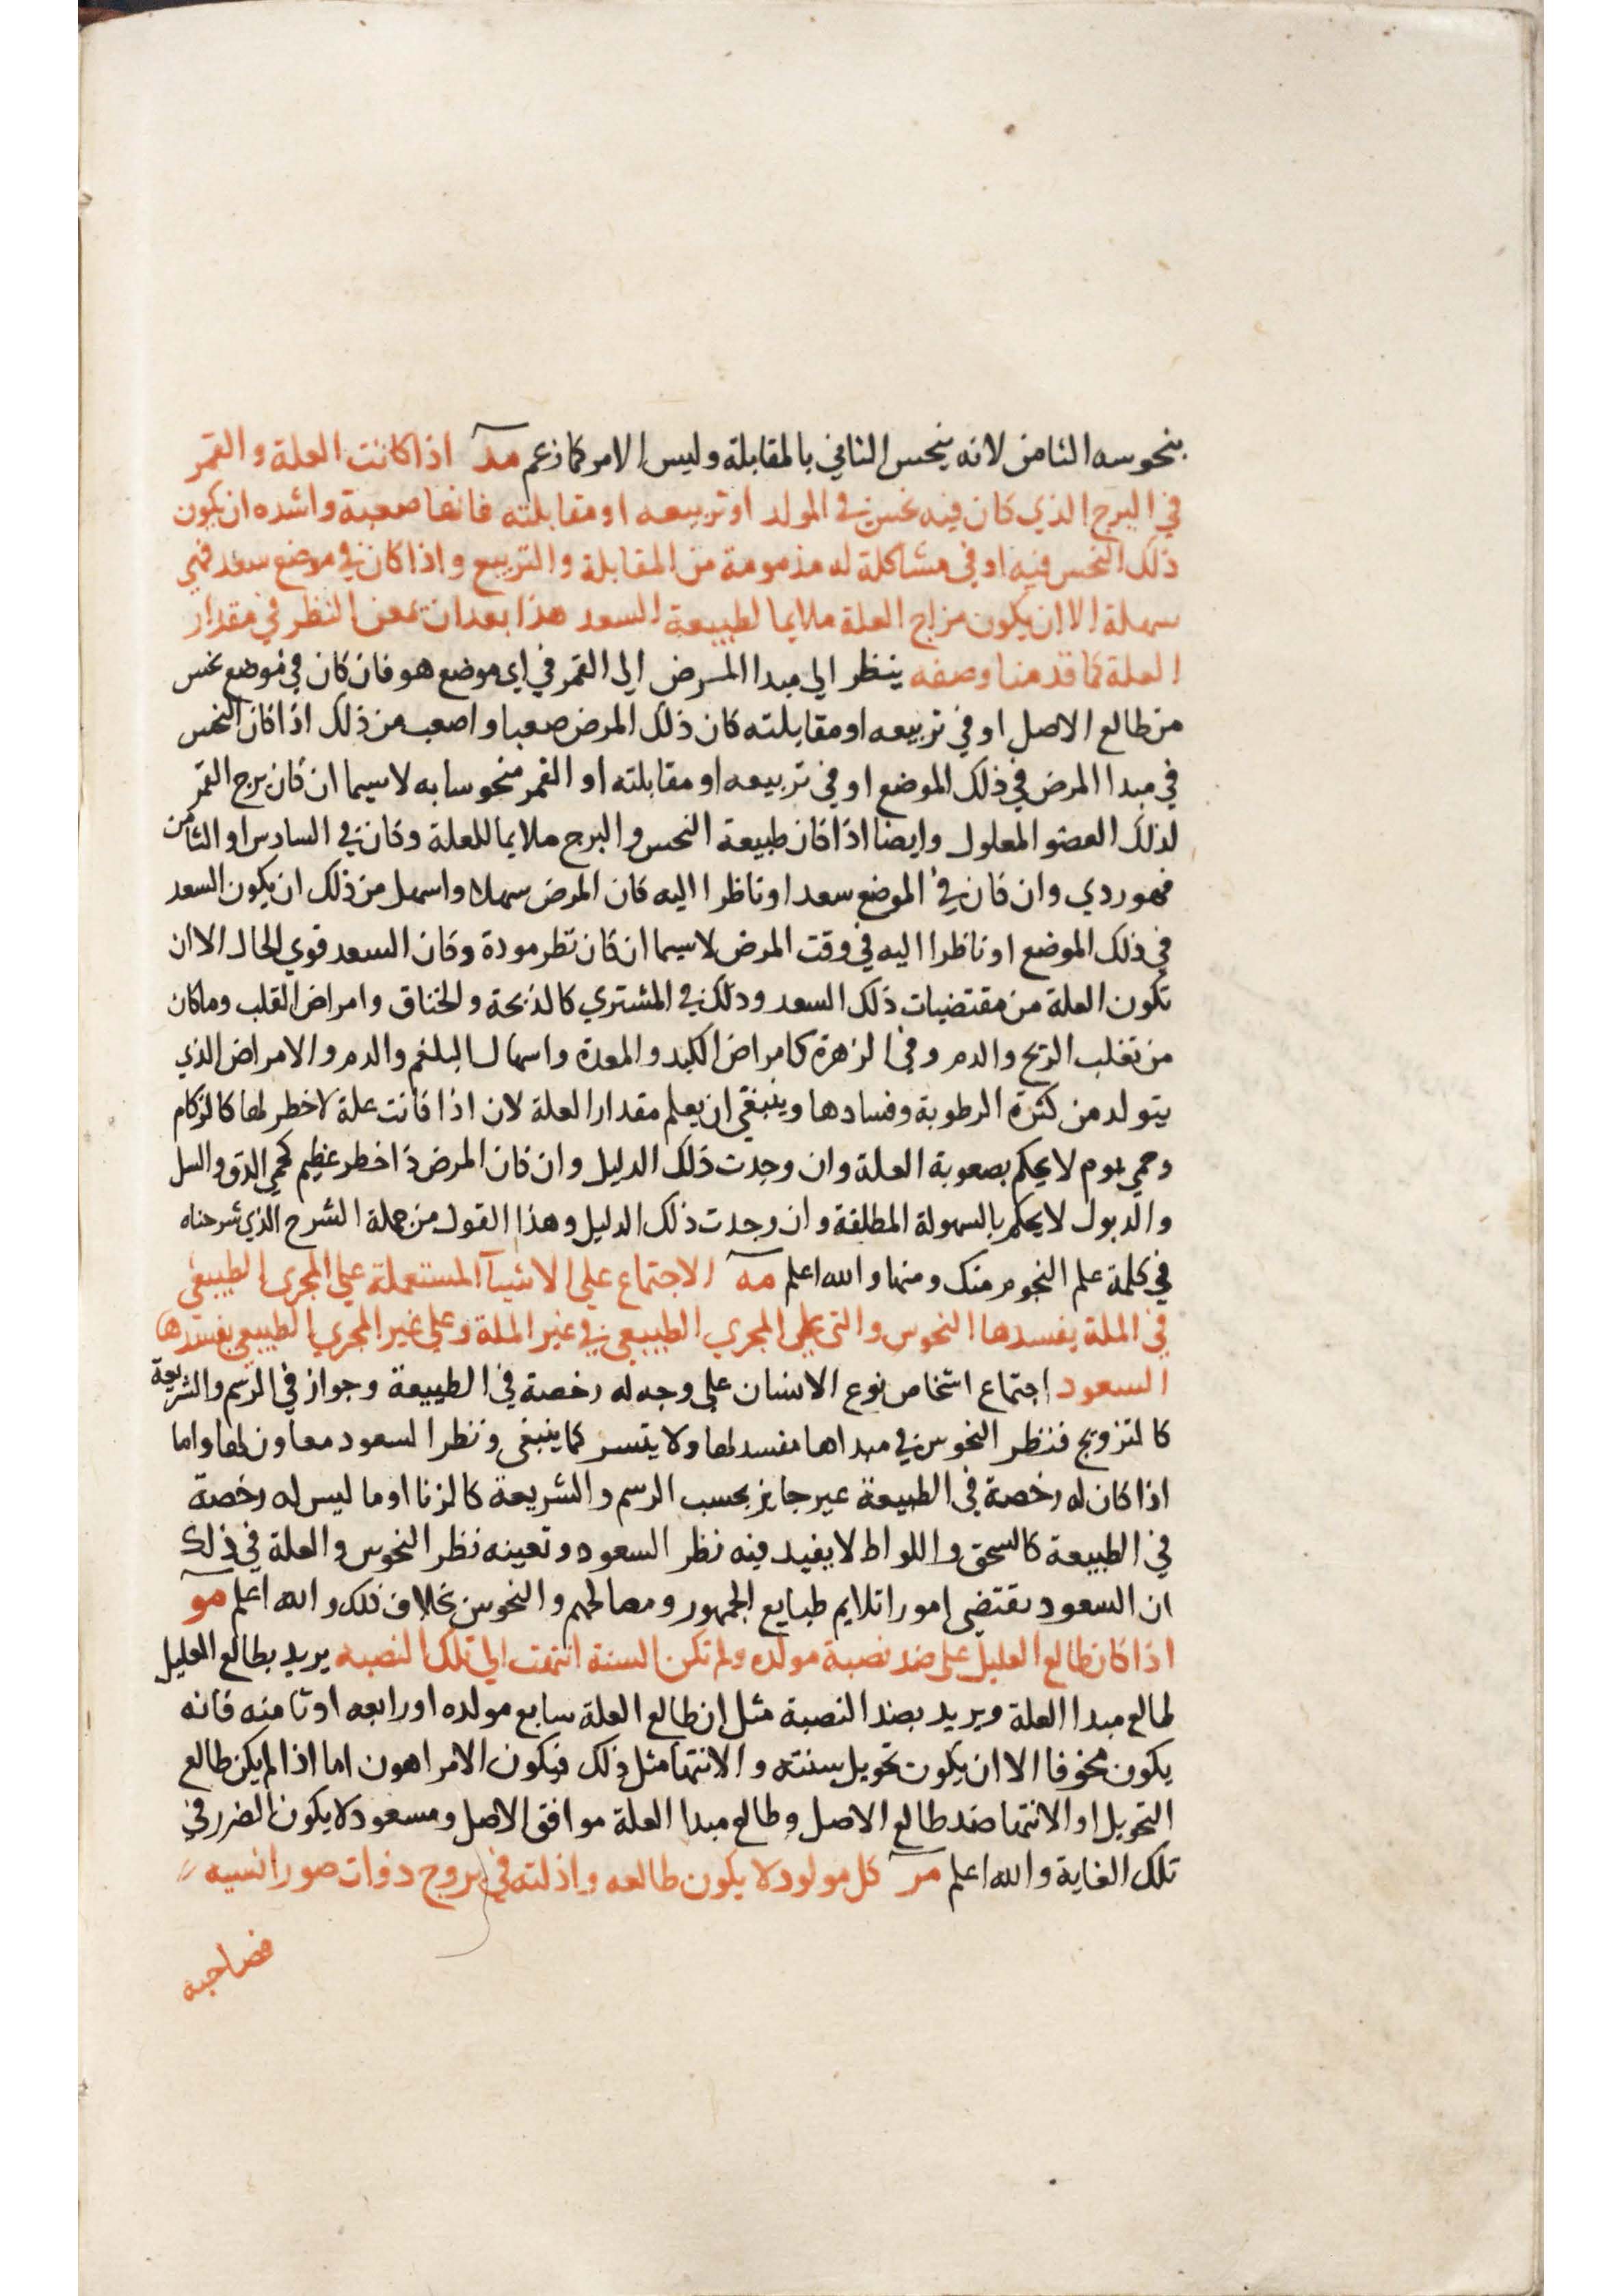 بنحوسه الثامن لانه ينحس الثاني بالمقابلة وليس الامر كما زعم مد اذا كانت العلة والقمر
في البرج الذي كان فيه نحس في المولد او تربيعه او مقابلته فانها صعبة واشده ان يكون
ذلك النحس فيه او في مشاكلة له مذمومة من المقابلة والتربيع واذا كان في موضع سعد فهي
سهلة الا ان يكون مزاج العلة ملايما لطبيعة السعد هذا بعد ان تمعن النظر في مقدار
العلة كما قدمنا وصفه ينظر الي مبدا المرض الي القمر في اي موضع هو فان كان في موضع نحس
من طالع الاصل او في تربيعه او مقابلته كان ذلك المرض صعبا واصعب من ذلك اذا كان النحس
في مبدا المرض في ذلك الموضع او في تربيعه او مقابلته او القمر منحوسا به لا سيما ان كان برج القمر
لذلك العضو المعلول وايضا اذا كان طبيعة النحس والبرج ملايما للعلة وكان في السادس او الثامن
فهو ردي وان كان في الموضع سعد او ناظرا اليه كان المرض سهلا واسهل من ذلك ان يكون السعد
في ذلك الموضع او ناظرا اليه في وقت المرض لا سيما ان كان نظر مودة وكان السعد قوي الحال الا ان
تكون العلة من مقتضيات ذلك السعد وذلك في المشتري كالذبحة والخناق وامراض القلب وما كان
من تغلب الريح والدم وفي الزهرة كامراض الكبد والمعدة واسهال البلغم والدم والامراض الذي
يتولد من كثرة الرطوبة وفسادها وينبغي ان يعلم مقدار العلة لان اذا كانت علة لا خطر لها كالزكام
وحمي يوم لا يحكم بصعوبة العلة وان وجدت ذلك الدليل وان كان المرض ذا خطر عظيم كحمي الدق والسل
والدبول لا يحكم بالسهولة المطلقة وان وجدت ذلك الدليل وهذا القول من جملة الشرح الذي شرحناه
في كلمة علم النجوم منك ومنها والله اعلم مه الاجتماع علي الاشيآ المستعملة علي المجري الطبيعي
في الملة يفسدها النحوس والتي علي المجري الطبيعي في غير الملة وعلي غير المجري الطبيعي يفسدها
السعود اجتماع اشخاص نوع الانسان علي وجه له رخصة في الطبيعة وجواز في الرسم والشريعة
كالتزويج فنظر النحوس في مبداها مفسد لها ولا يتسر كما ينبغي ونظر السعود معاون لها واما
اذا كان له رخصة في الطبيعة غير جايز بحسب الرسم والشريعة كالزنا او ما ليس له رخصة
في الطبيعة كالسحق واللواط لا يفيد فيه نظر السعود وتعينه نظر النحوس والعلة في ذلك
ان السعود تقتضي امورا تلايم طبايع الجمهور ومصالحهم والنحوس بخلاف ذلك والله اعلم مو
اذا كان طالع العليل علي ضد نصبة مولده ولم تكن السنة انتهت الي تلك النصبه يريد بطالع العليل
طالع مبدا العلة ويريد بضد النصبة مثل ان طالع العلة سابع مولده او رابعه او ثامنه فانه
يكون مخوفا الا ان يكون تحويل سنته والانتها مثل ذلك فيكون الامر اهون اما اذا لم يكن طالع
التحويل او الانتها ضد طالع الاصل وطالع مبدا العلة موافق الاصل ومسعود لا يكون الضرر في
تلك الغاية والله اعلم مز كل مولود لا يكون طالعه وادلته في بروج ذوات صور انسيه
فصاحبه